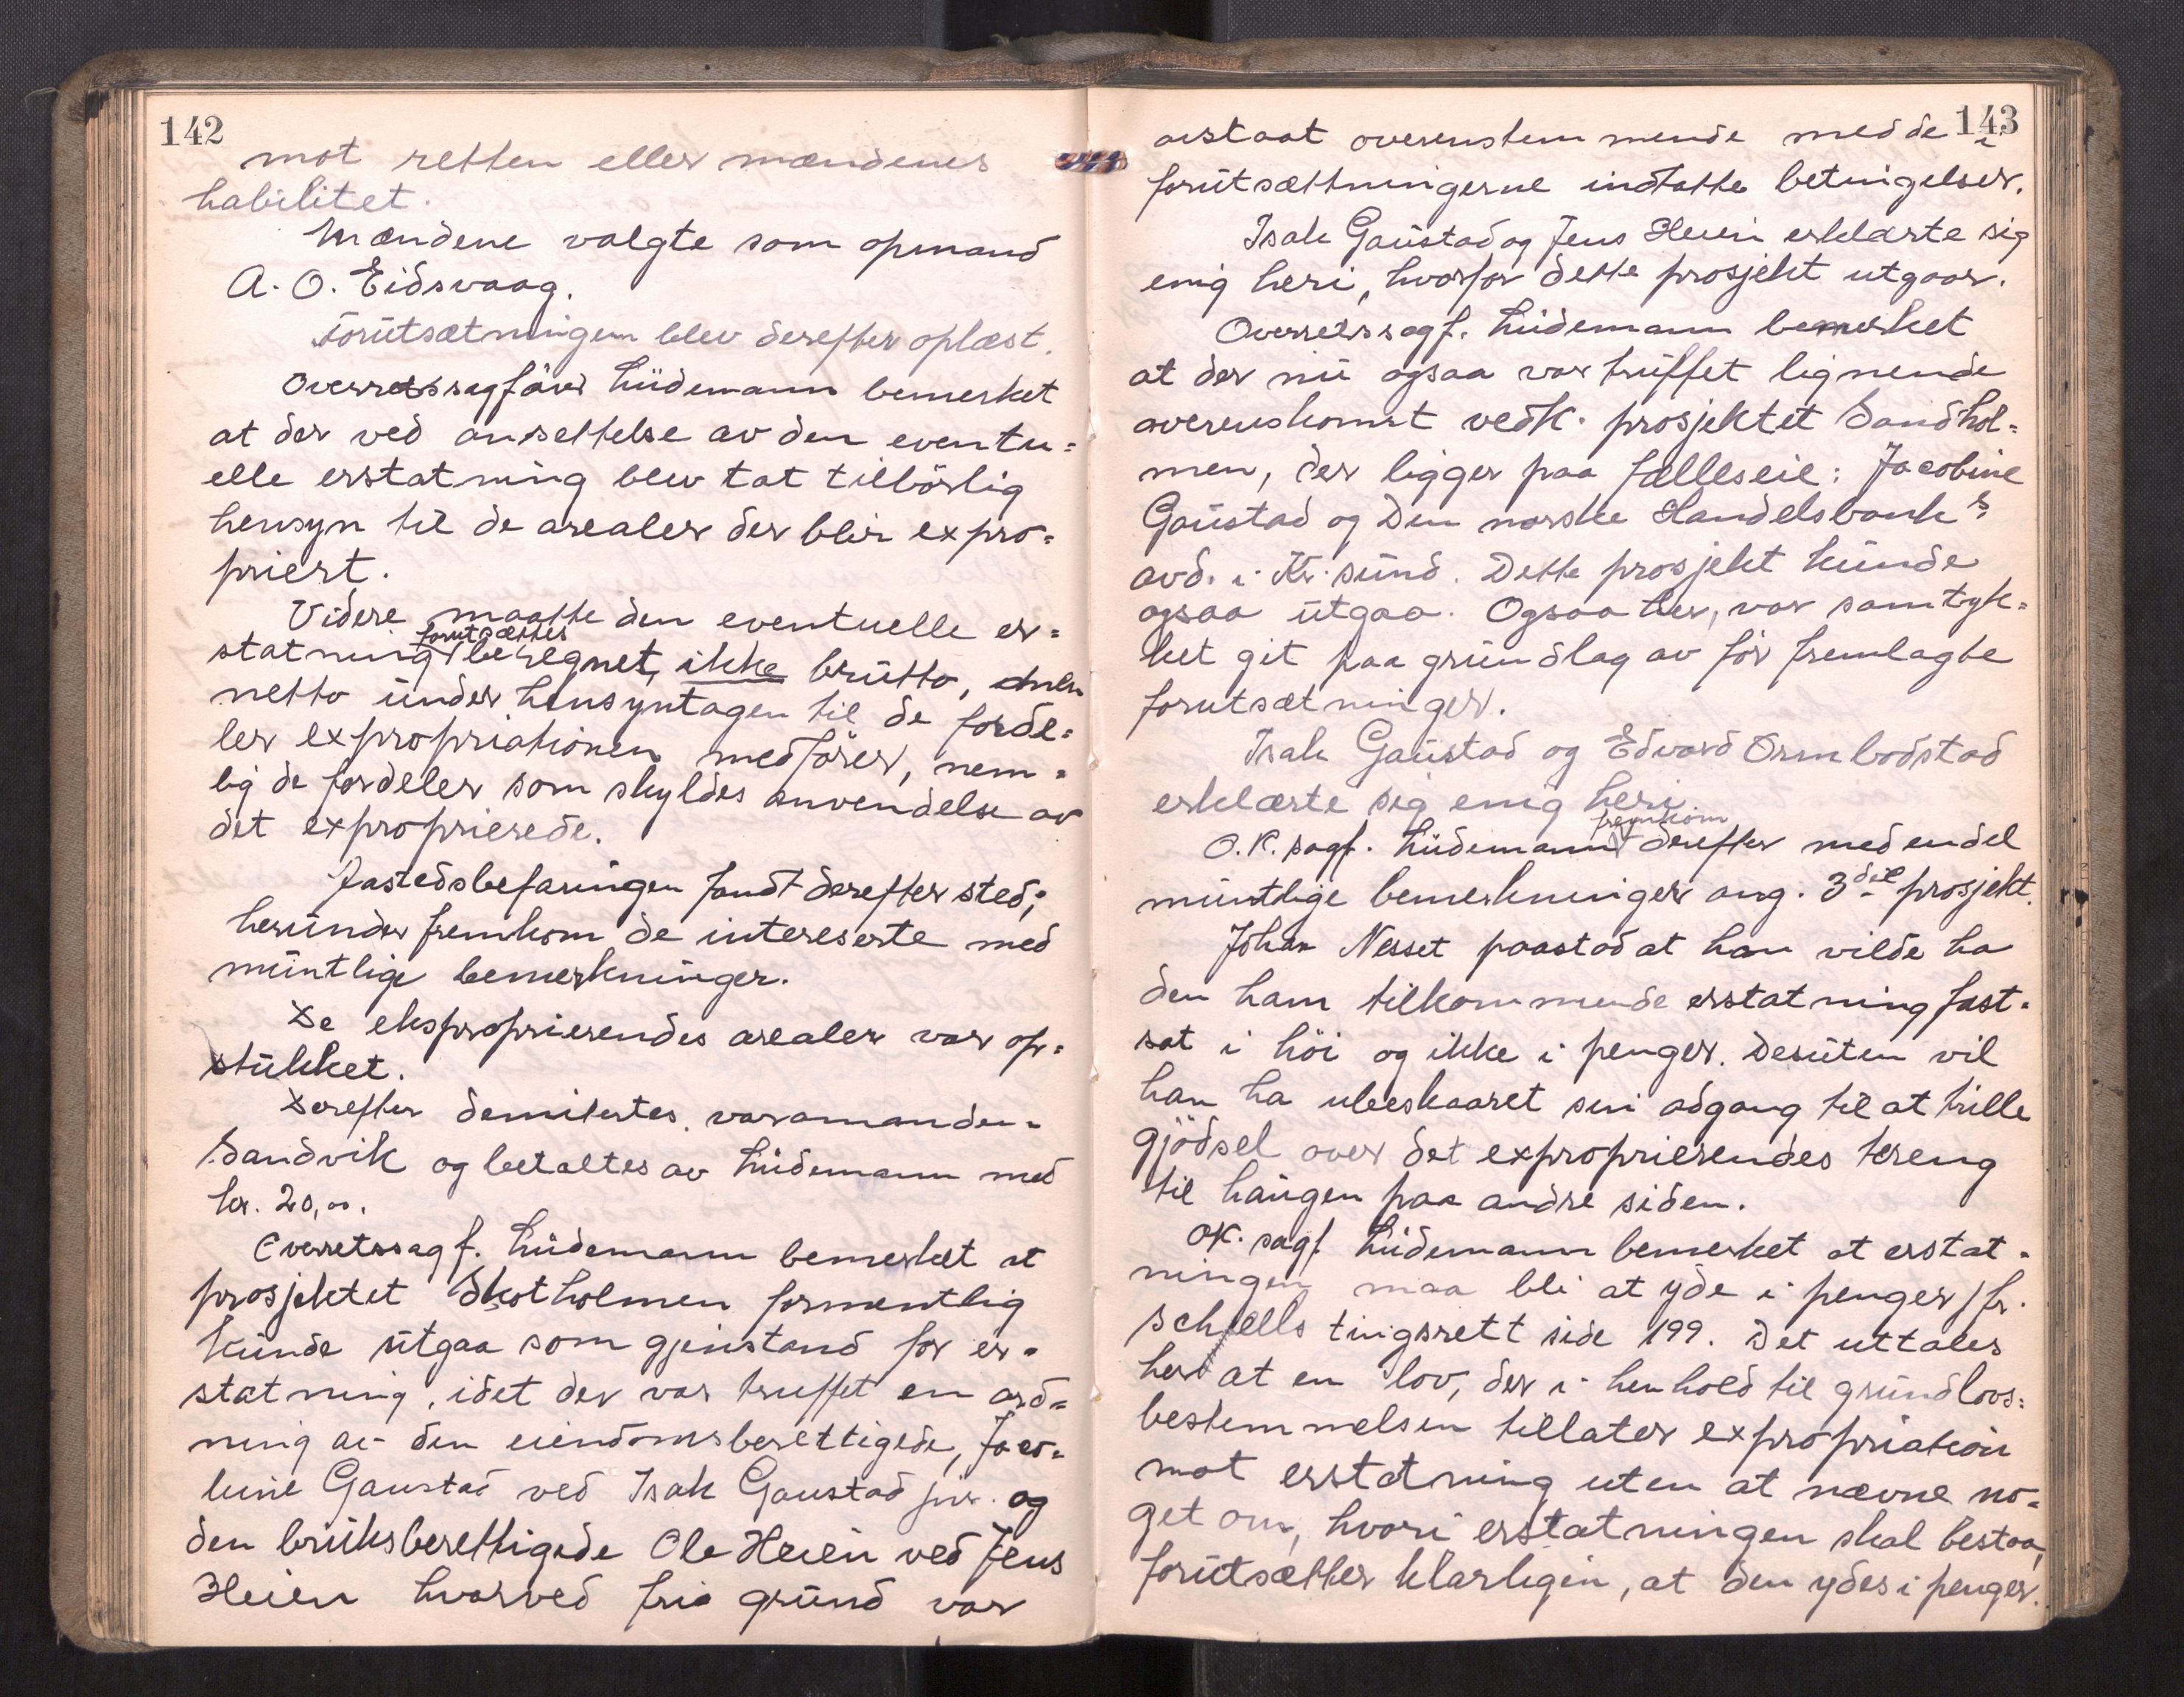 142
mot retten eller mændenes
habilitet.
Mændene valgte som opmand
A. O. Eidsvaag.
Forutsætningen blev derefter oplæst.
Overretssagfører Lüdemann bemerket
at der ved ansettelse av den eventu=
elle erstatning blev tat tilbörlig
hensyn til de arealer der blir expro=
priert.
Videre maatte den eventuelle er=
forutsættes
statning beregnet, ikke brutto, men
netto under hensyntagen til de forde=
ler expropriationen medförer, nem=
lig de fordeler som skyldes anvendelse av
det exproprierede.
Jastedsbefaringen fandt derefter sted;
herunder fremkom de intereserte med
muntlige bemerkninger.
De eksproprierendes arealer var op=
stukket.
Derefter demitertes varamanden
Sandvik og betaltes av Lüdemann med
kr. 20,00.
Overretssagf. Lüdemann bemerket at
prosjektet Skotholmen formentlig
kunde utgaa som gjenstand for er=
statning, idet der var truffet en ord=
ning av den eiendomsberettigede, Jaco=
bine Gaustad ved Isak Gaustad jnr. og
den bruksberettigede Ole Heien ved Jens
Heien hvorved fri grund var
143
avstaat overenstemmende med de i
forutsættningerne indtatte betingelser.
Isak Gaustad og Jens Heien erklærte sig
enig heri, hvorfor dette prosjekt utgaar.
Overretssagf. Lüdemann bemerket
at der nu ogsaa var truffet lignende
overenskomst vedk. prosjektet Sandhol=
men, der ligger paa fælleseie: Jacobine
Gaustad og Den norske Handelsbank's
avd. i Kr.sund. Dette prosjekt kunde
ogsaa utgaa. Ogsaa her, var samtyk=
ket git paa grundlag av før fremlagte
forutsætninger.
Isak Gaustad og Edvard Ormbodstad
erklærte sig enig heri.
fremkom
O.R. sagf. Lüdemann derefter med endel
muntlige bemerkninger ang. 3die prosjekt.
Johan Nesset paastod at han vilde ha
den ham tilkommende erstatning fast=
sat i höi og ikke i penger. Desuten vil
han ha ubeskaaret sin adgang til at trille
gjödsel over det exproprierendes tereng
til haugen paa andre siden.
OR. sagf. Lüdemann bemerket at erstat=
ningen maa bli at yde i penger jfr.
Schjells tingsrett side 199. Det uttales
her at en lov, der i henhold til grundlovs=
bestemmelsen tillater expropriation
mot erstatning uten at nævne no=
get om, hvori erstatningen skal bestaa,
forutsætter klarligen, at den ydes i penger.